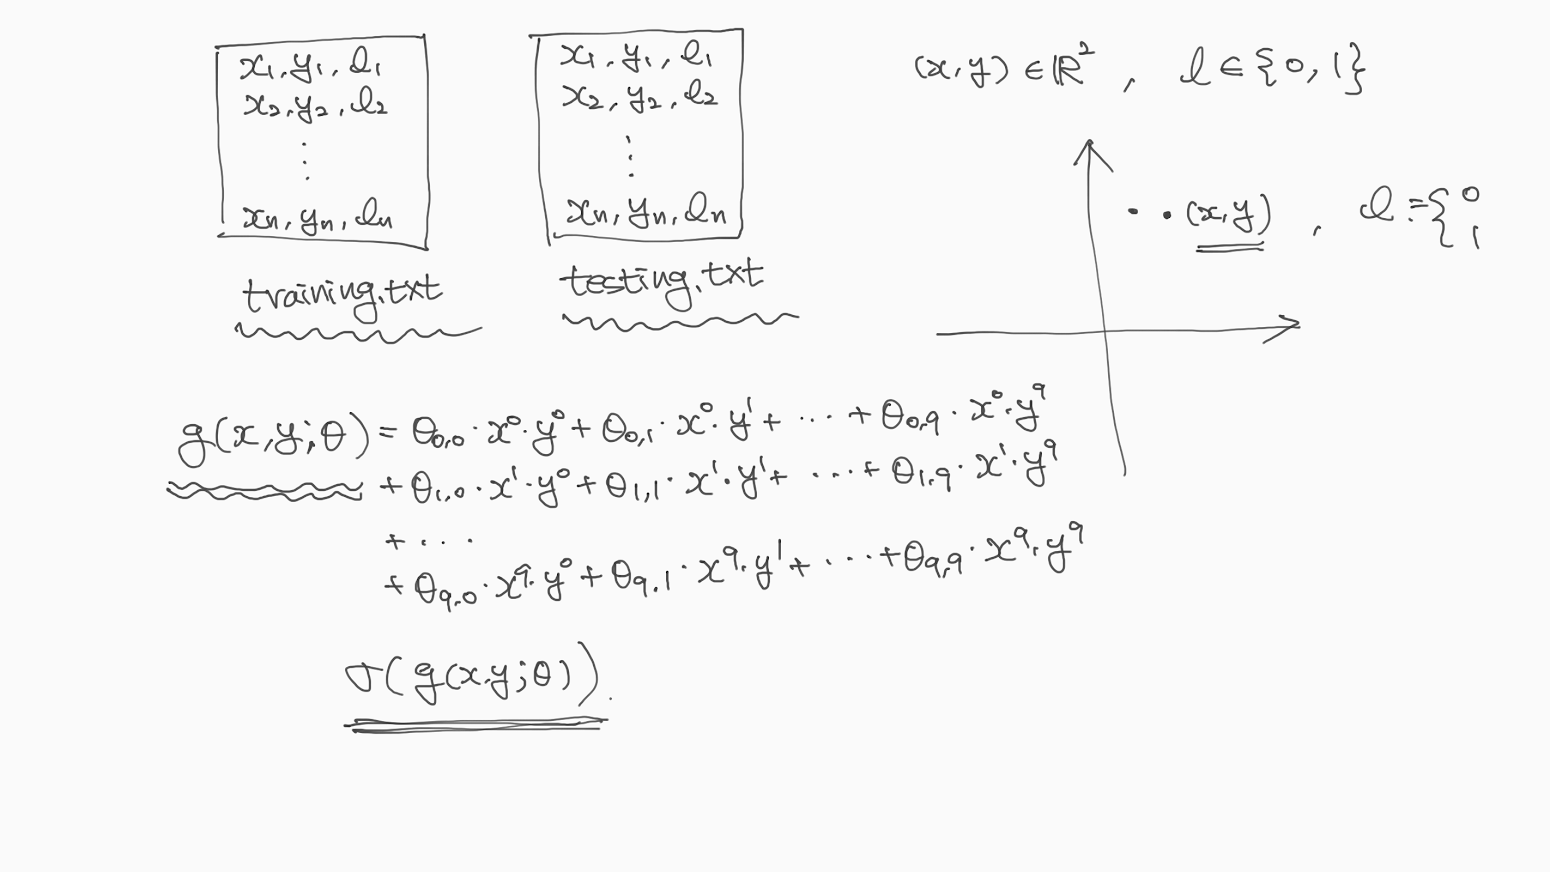 x₁, y₁, l₁
x₂, y₂, l₂
⋮
xₙ, yₙ, lₙ
training.txt
x₁, y₁, l₁
x₂, y₂, l₂
⋮
xₙ, yₙ, lₙ
testing.txt
(x, y) ∈ ℝ², l ∈ {0, 1}
(x, y), l = { 0
1
g(x, y; θ) = θ₀,₀ · x⁰ · y⁰ + θ₀,₁ · x⁰ · y¹ + ··· + θ₀,₉ · x⁰ · y⁹
+ θ₁,₀ · x¹ · y⁰ + θ₁,₁ · x¹ · y¹ + ··· + θ₁,₉ · x¹ · y⁹
+ ···
+ θ₉,₀ · x⁹ · y⁰ + θ₉,₁ · x⁹ · y¹ + ··· + θ₉,₉ · x⁹ · y⁹
σ(g(x, y; θ)).